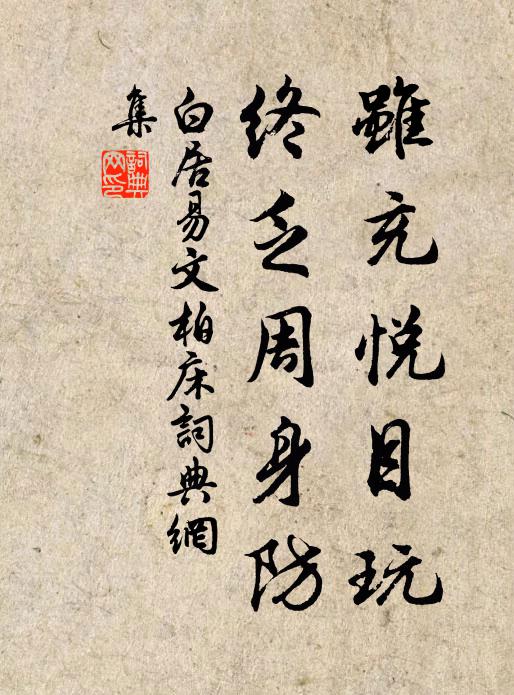 雖充悅目玩
終乏周身防
白居易文柏床詞典網
集
詞典
网印